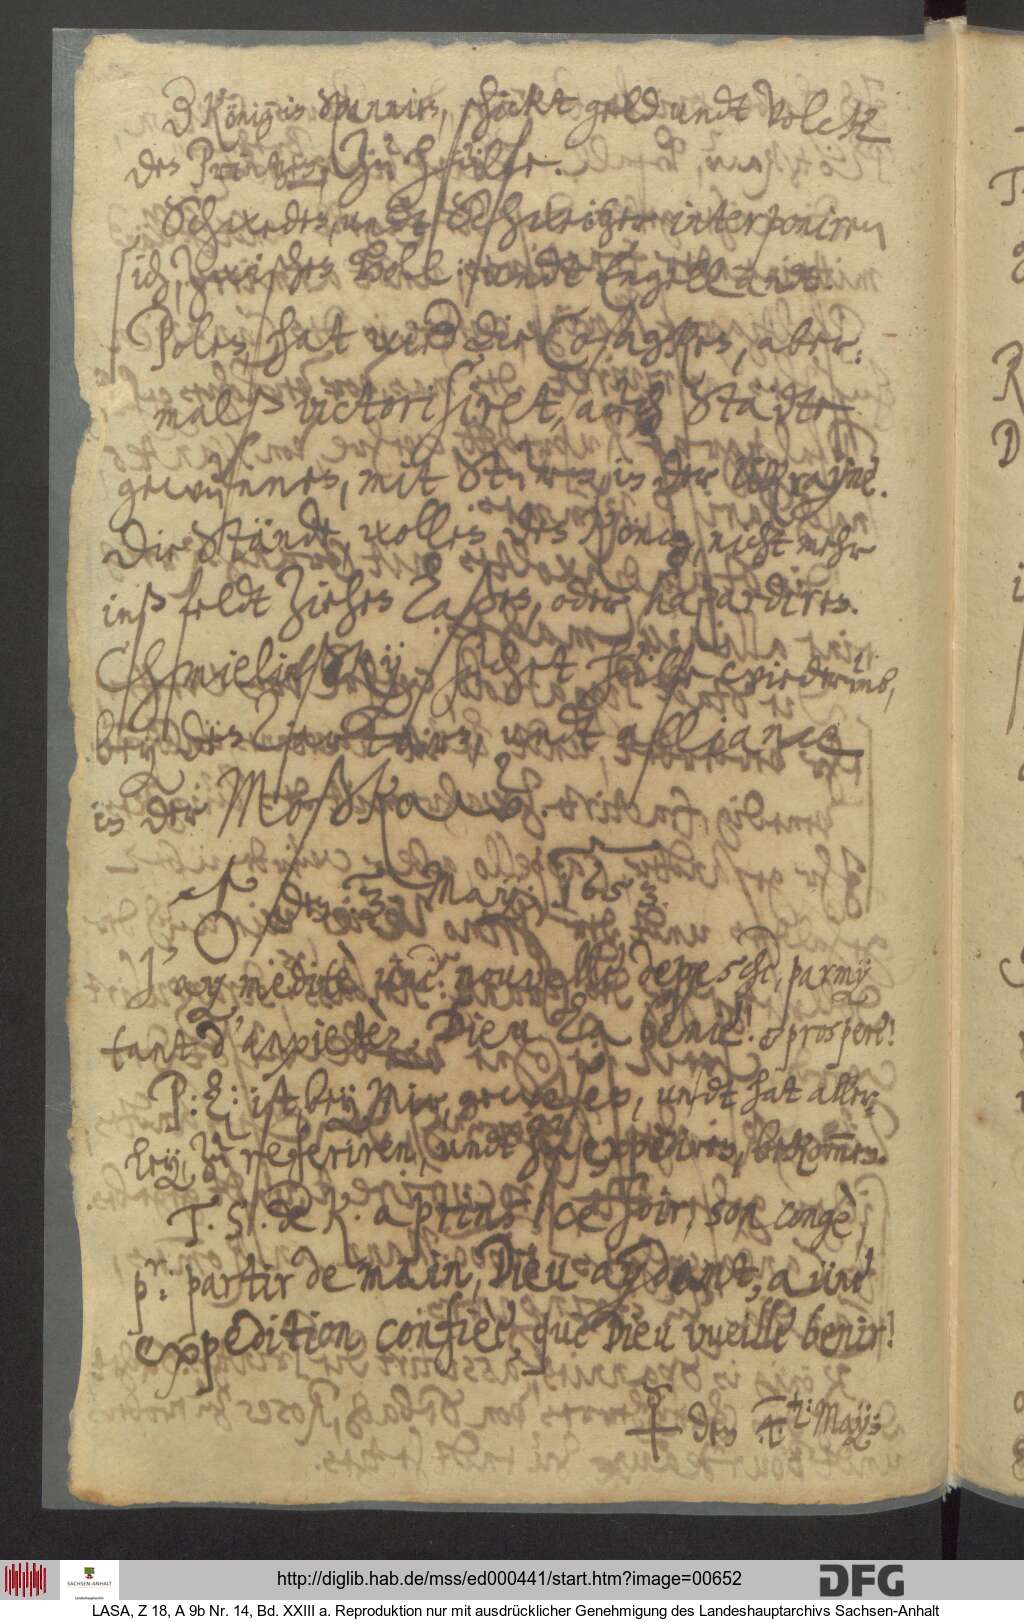 D König in Spannien, schickt geldt undt Volck
des Printzen, zu hülffe.
Schweden, undt Schweitzer interponiren
sich, zwischen Holl: undt Engellandt.
Polen, hat wieder die Cosagken, aber-
malß victorisiret, auch Städte
gewunnen, mit Sturm, in der Ukrayne.
Die Stände wollen den König, nicht mehr
inß feldt ziehen Laßen, oder hazardiren.
Chmielinsky, suchet hülffe wiederumb,
bey den Tartern, undt alliance
in der Moßkaw.
den 3. May: 1653.
J'ay medité, une nouvelle depesche, parmy
tant d'inpietez. Dieu la benie! & prospere!
P: L: ist bey Mir, gewesen, undt hat aller-
ley, zu referiren, undt zu expediren, bekommen.
T. S. de K. a prins ce soir, son congè
pr: partir demain, Dieu aydant, a une
expedition confiee, que Dieu vueille benir!
den 4. t: May:
http://diglib.hab.de/mss/ed000441/start.htm?image=00652
SACHSEN-ANHALT
Landeshauptarchiv
DFG
LASA, Z 18, A 9b Nr. 14, Bd. XXIII a. Reproduktion nur mit ausdrücklicher Genehmigung des Landeshauptarchivs Sachsen-Anhalt